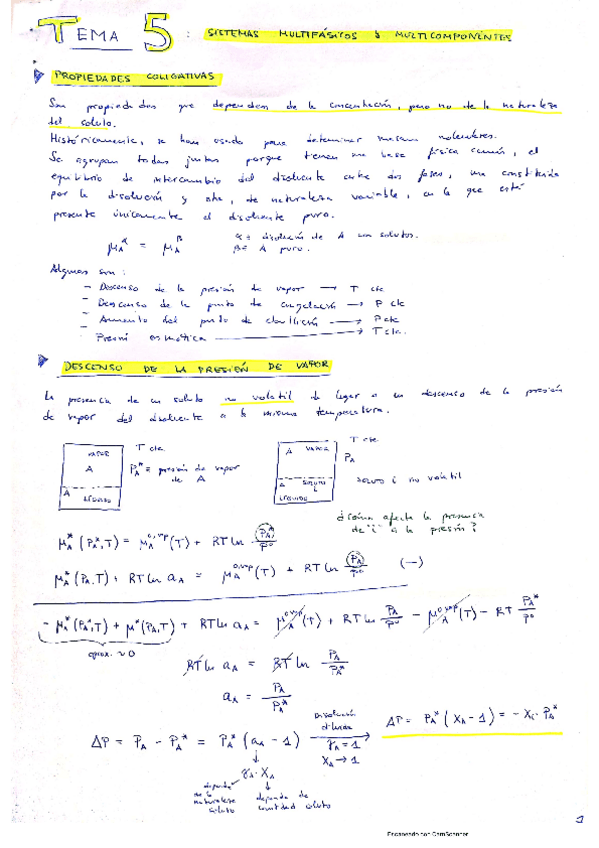 TEMA 5 : SISTEMAS MULTIFÁSICOS Y MULTICOMPONENTES
PROPIEDADES COLIGATIVAS
Son propiedades que dependen de la concentración, pero no de la naturaleza
del soluto.
Históricamente, se han usado para determinar masas moleculares.
Se agrupan todas juntas porque tienen una base física común, el
equilibrio de intercambio del disolvente entre dos fases, una constituida
por la disolución y otra, de naturaleza variable, en la que está
presente únicamente el disolvente puro.
μ_A^α = μ_A^β
α = disolución de A con solutos.
β = A puro.
Algunas son:
- Descenso de la presión de vapor → T cte
- Descenso de la punto de congelación → P cte
- Aumento del punto de ebullición → P cte
- Presión osmótica → T cte.
DESCENSO DE LA PRESIÓN DE VAPOR
La presencia de un soluto no volátil da lugar a un descenso de la presión
de vapor del disolvente a la misma temperatura.
VAPOR
A
A
LÍQUIDO
T cte.
P_A^* = presión de vapor
de A
A VAPOR
A
LÍQUIDO
T cte
P_A
soluto i no volátil
¿Cómo afecta la presencia
de "i" a la presión?
μ_A^* (P_A^*, T) = μ_A^{o,vap} (T) + RT ln P_A^*/P^o
μ_A^* (P_A, T) + RT ln a_A = μ_A^{o,vap} (T) + RT ln P_A/P^o (-)
- μ_A^* (P_A^*, T) + μ^* (P_A, T) + RT ln a_A = μ_A^{o,vap} (T) + RT ln P_A/P^o - μ_A^{o,vap} (T) - RT P_A^*/P^o
aprox. ~ 0
RT ln a_A = RT ln P_A/P_A^*
a_A = P_A/P_A^*
ΔP = P_A - P_A^* = P_A^* (a_A - 1)
Disolución
diluida
γ_A = 1
X_A → 1
ΔP = P_A^* (X_A - 1) = - X_i · P_A^*
γ_A · X_A
depende
de la
naturaleza
soluto
depende de
cantidad soluto
1
Escaneado con CamScanner